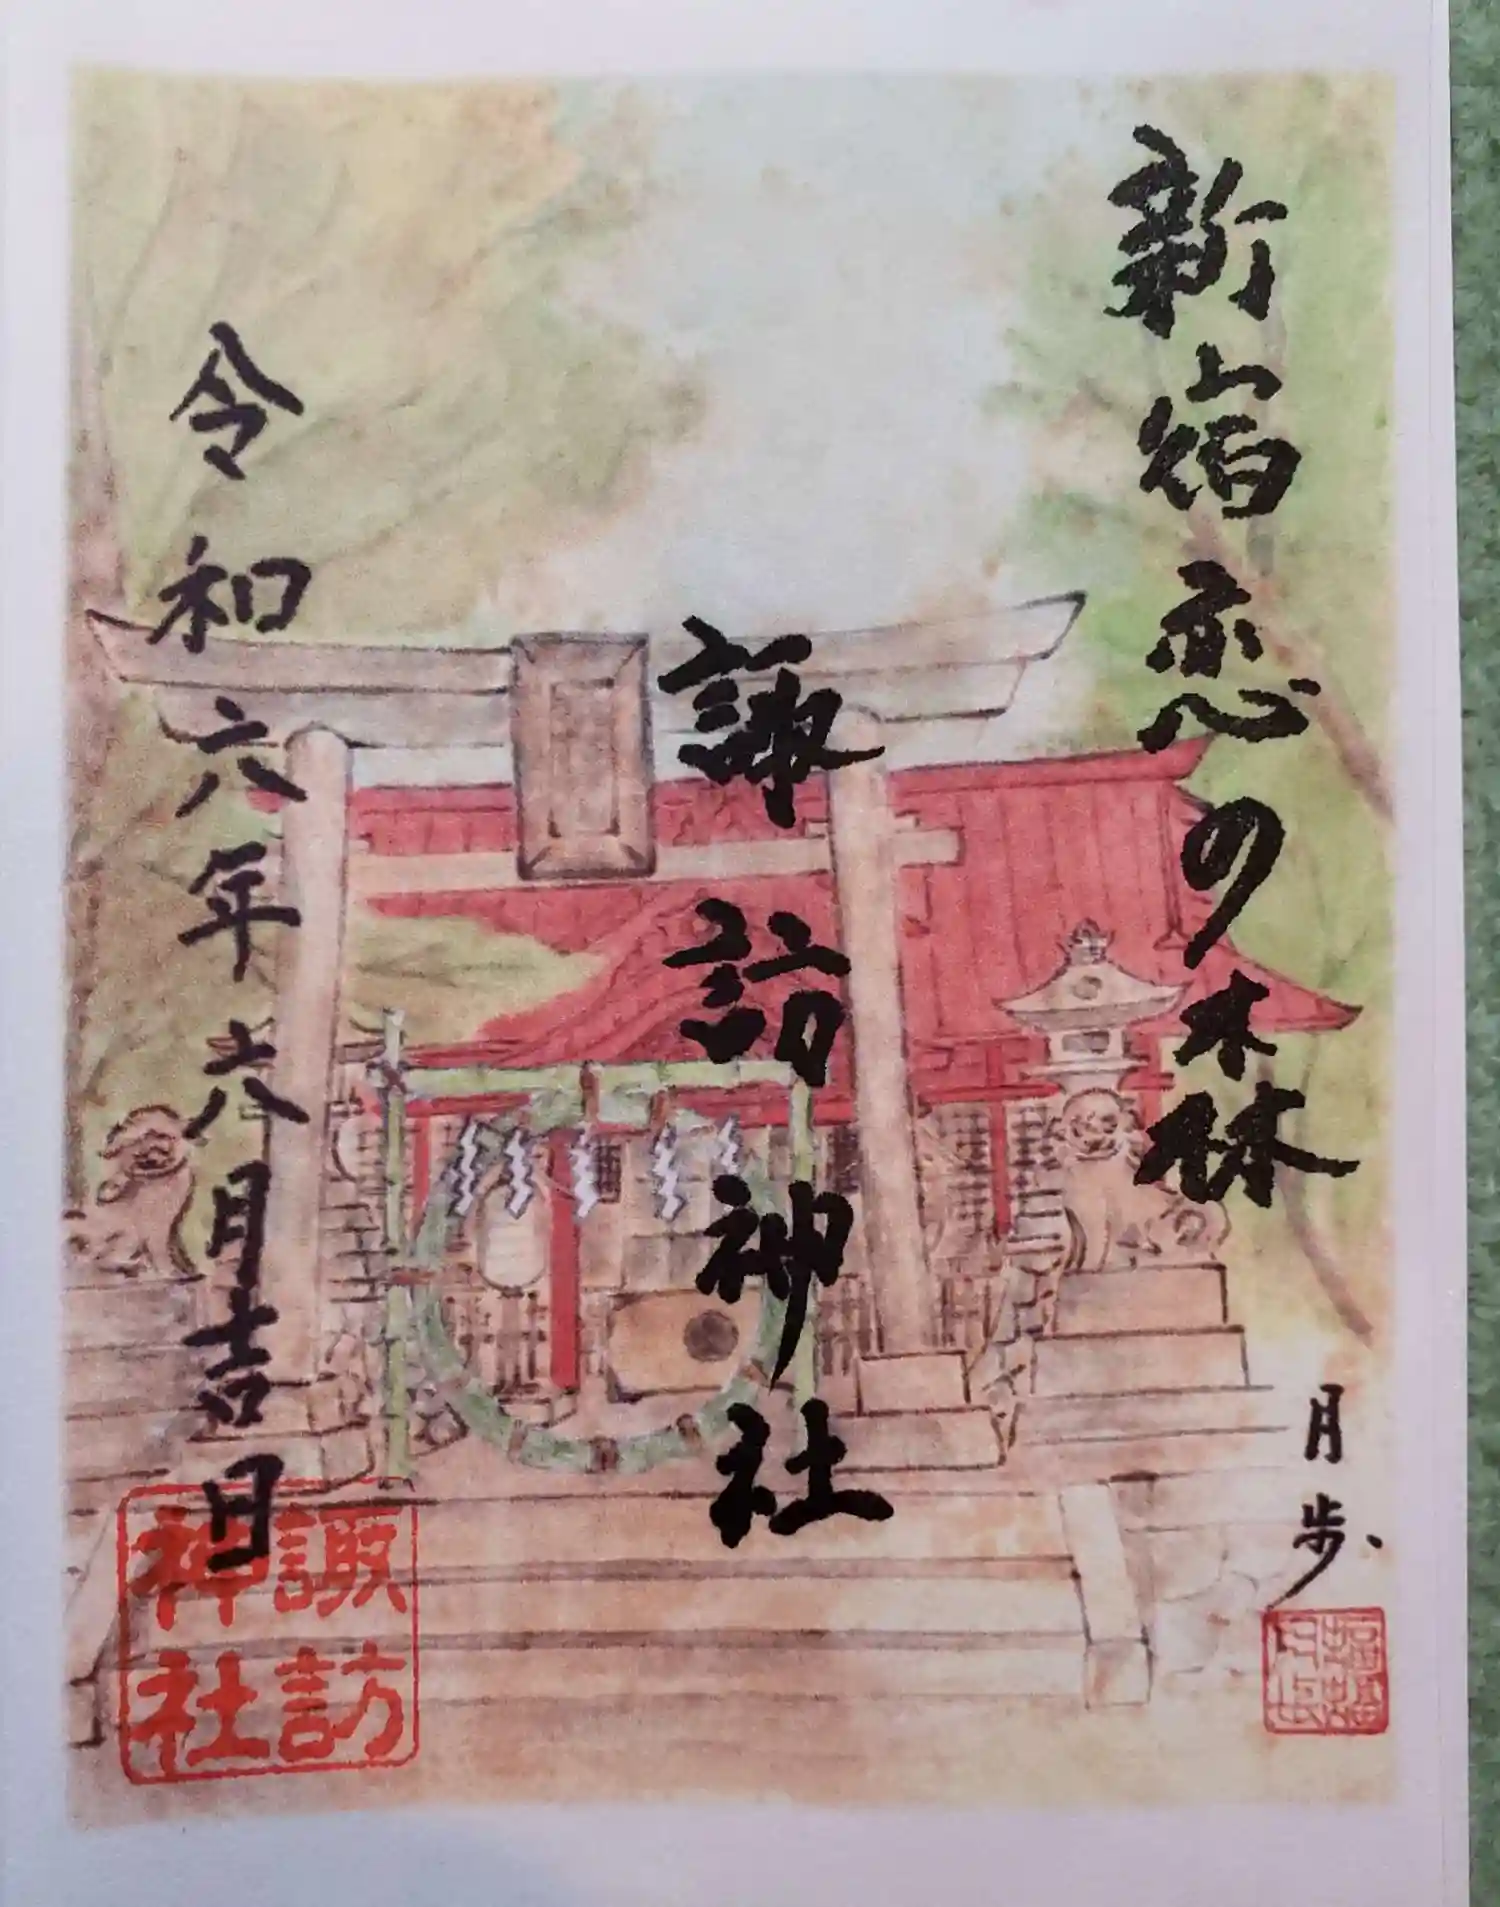 新宿恋の森
月歩
諏訪神社
令和六年六月吉日
諏訪
神社